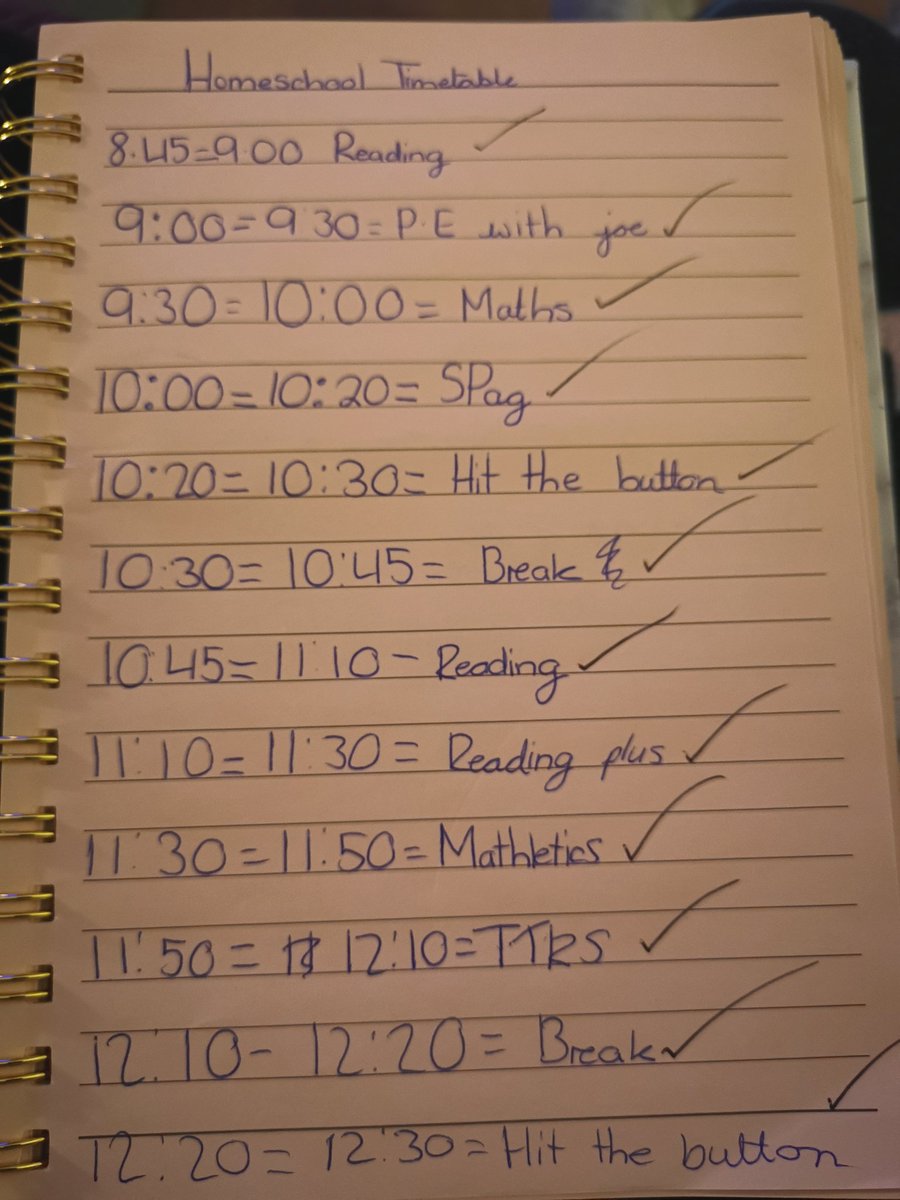 Homeschool Timetable
8.45=9.00 Reading
9:00=9 30=P.E with joe
9:30=10:00= Maths
10:00=10:20= SPag
10:20=10:30= Hit the button
10:30= 10:45= Break
10:45=11:10- Reading
11:10=11:30= Reading plus
11:30=11:50=Mathletics
11:50= 12:10=TTRS
12:10- 12:20= Break
12:20= 12:30=Hit the button